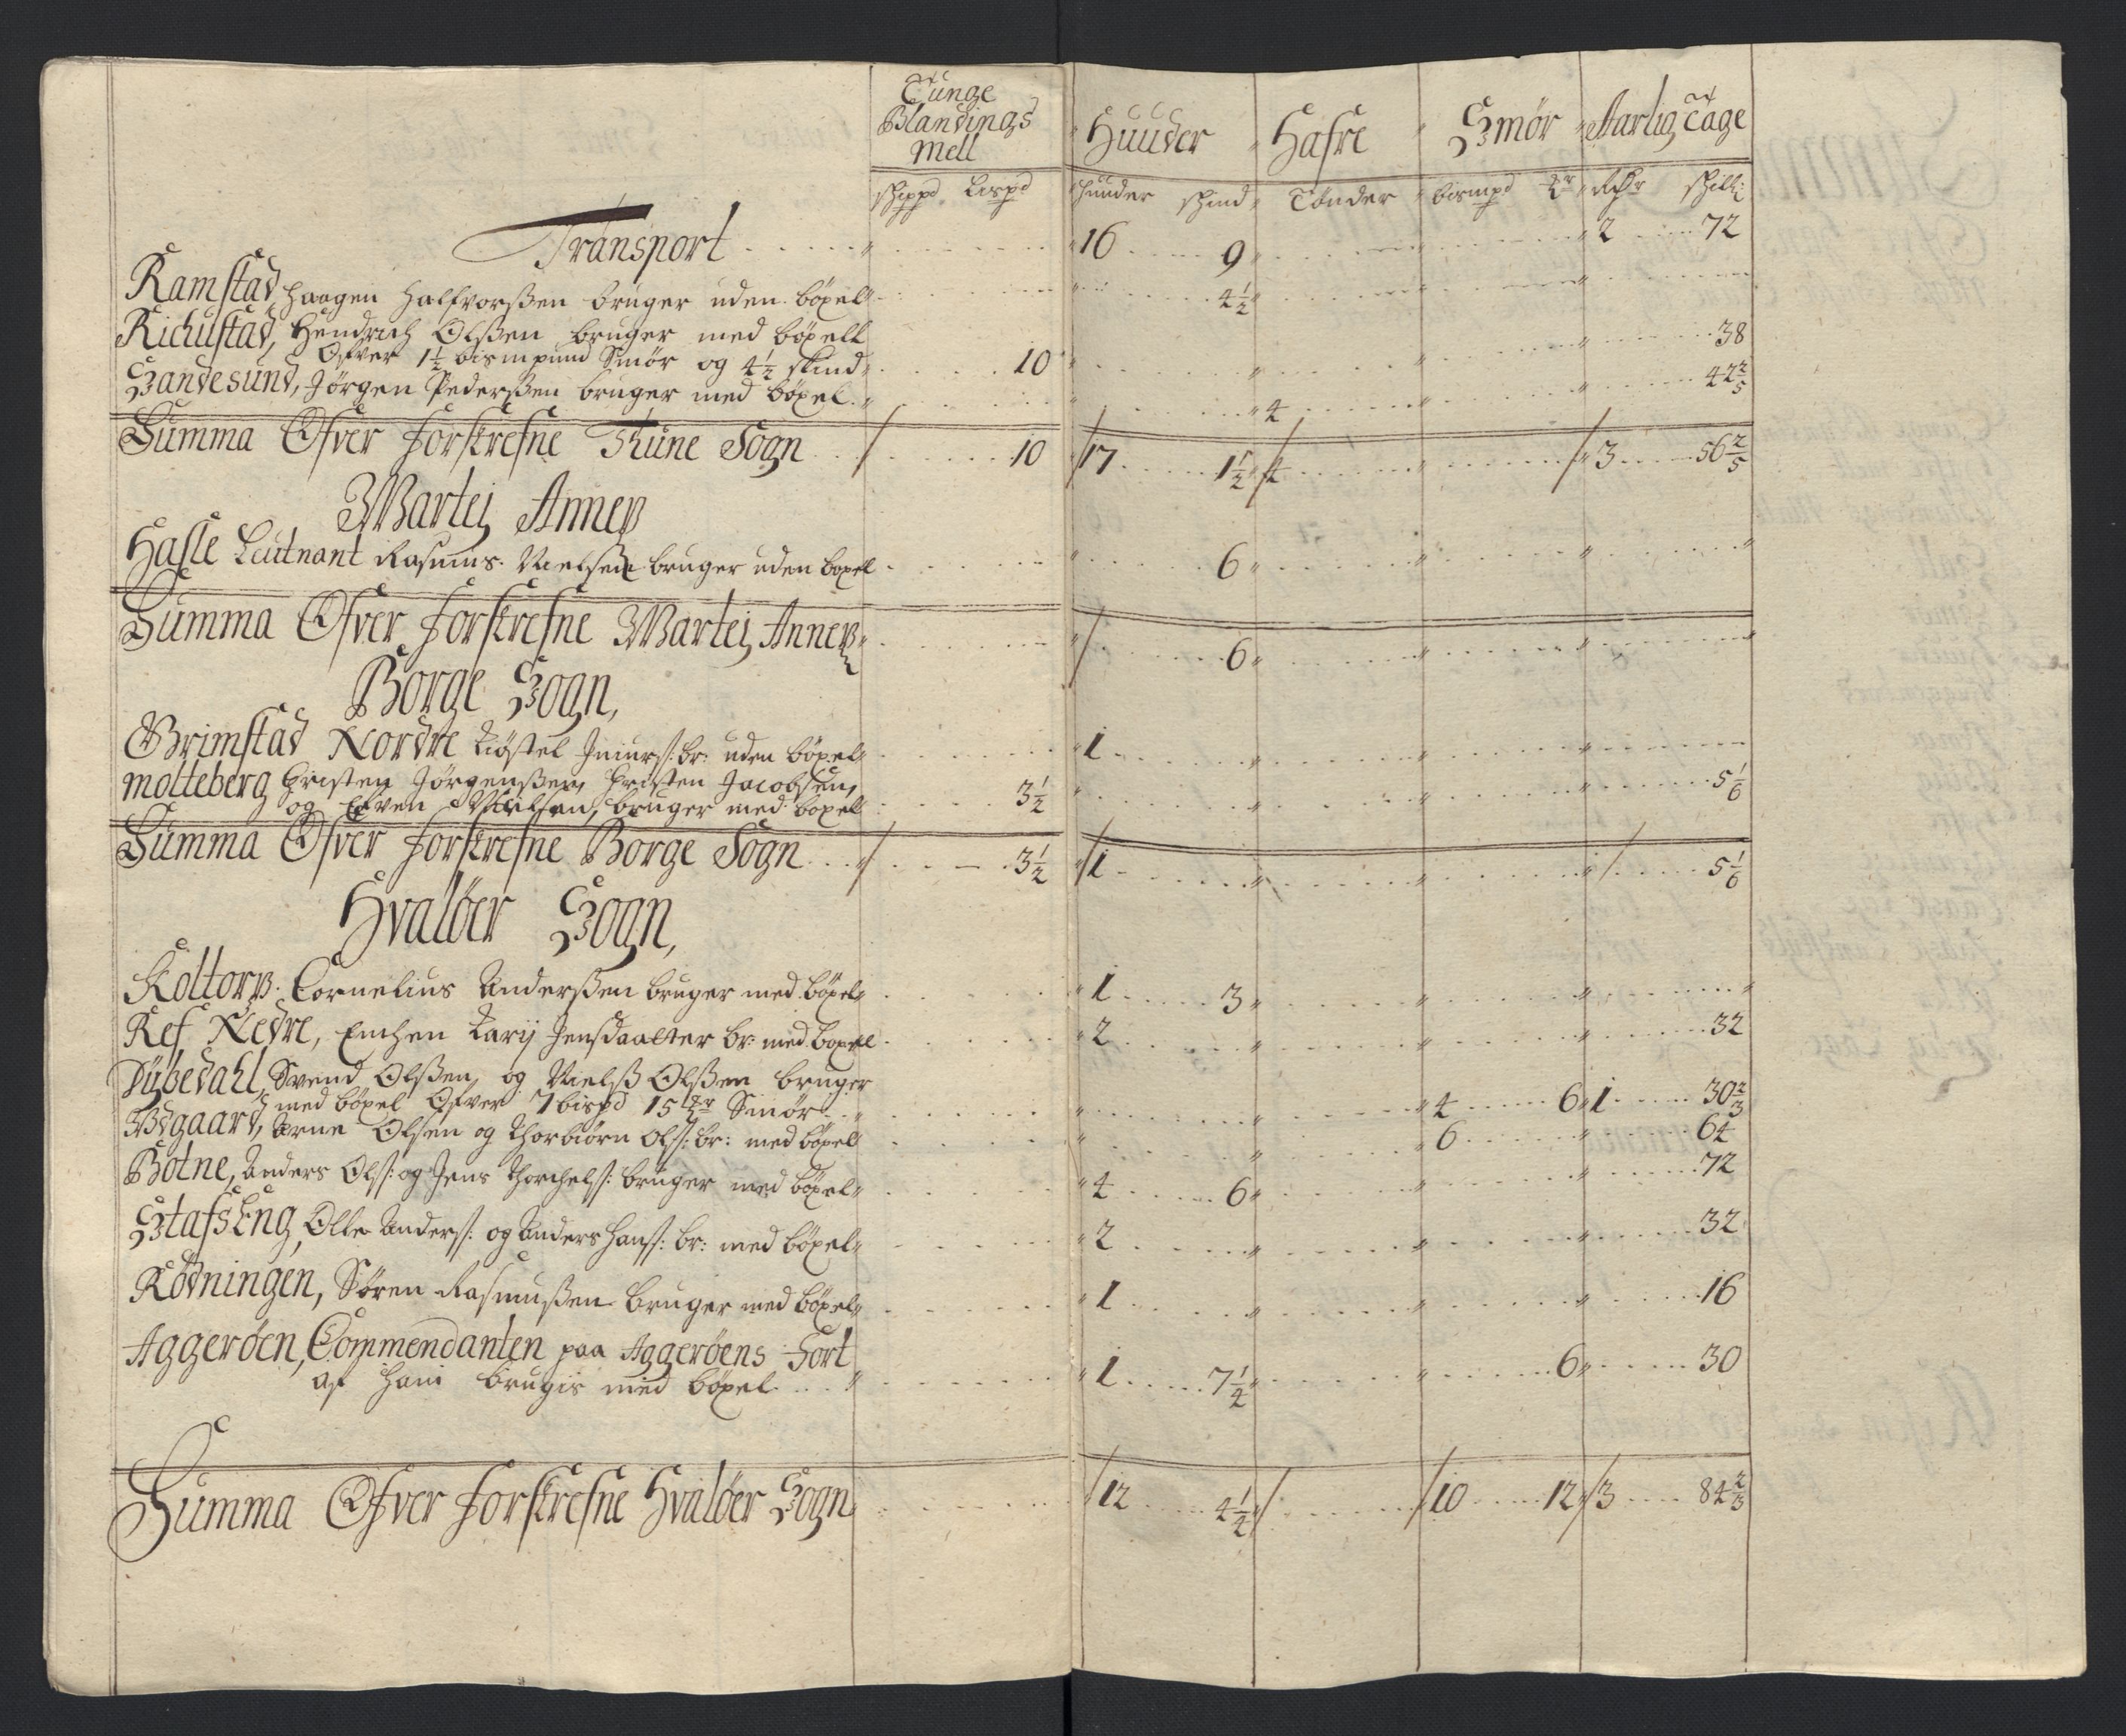 Tunge Blandings Mell | Huuder | Hafre | Smør | Aarlig Tage
schippd Lispd | huuder skind | Tønder | bismpd | Rdr skill:
Transport 16 9 2 72
Ramstad, Haagen Halfvorßen bruger uden böxel 4½
Richustad, Hendrich Olßen bruger med böxell
Ofver 1½ bismpund Smör og 4½ skind 10 38
Sandesund, Jörgen Pederßen bruger med böxel 4 42 2/5
Summa Ofver Forskrefne Thune Sogn 10 17 1½ 4 3 56 2/5
Martei Annex
Hasle Leutnant Rasmus Nielsen bruger uden boxel 6
Summa Ofver Forskrefne Martei Annex 6
Borge Sogn,
Grimstad Nordre br: uden böxel 1
Molteberg Christen Jörgenßen, Christen Jacobsen,
og bruger med boxel 3½ 5 1/6
Summa Ofver Forskrefne Borge Sogn 3½ 1 5 1/6
Hvalöer Sogn,
Koltorp Cornelius Anderßen bruger med böxel 1 3
Ref Nedre, Enchen Karij Jensdaatter br: med boxell 2 32
Dybedahl, Svend Olßen, og Nielß Olßen bruger
med böxel Ofver 7 bispd 15 Smör 4 6 1 30 2/3
Ødgaard, Arne Olsen og Thorbiörn Ols: br: med böxel 6 64
Botne, Anders Ols: og Jens Thorchels: bruger med böxel 4 6 72
StafsEng, Olle Anders: og Anders Hans: br: med böxel 2 32
Rödningen, Sören Rasmußen bruger med böxel 1 16
Aggeröen, Commendanten paa Aggeröens Fort
af ham brugis med böxel 1 7¼ 6 30
Summa Ofver Forskrefne Hvalöer Sogn 12 4¼ 10 12 3 84 2/3